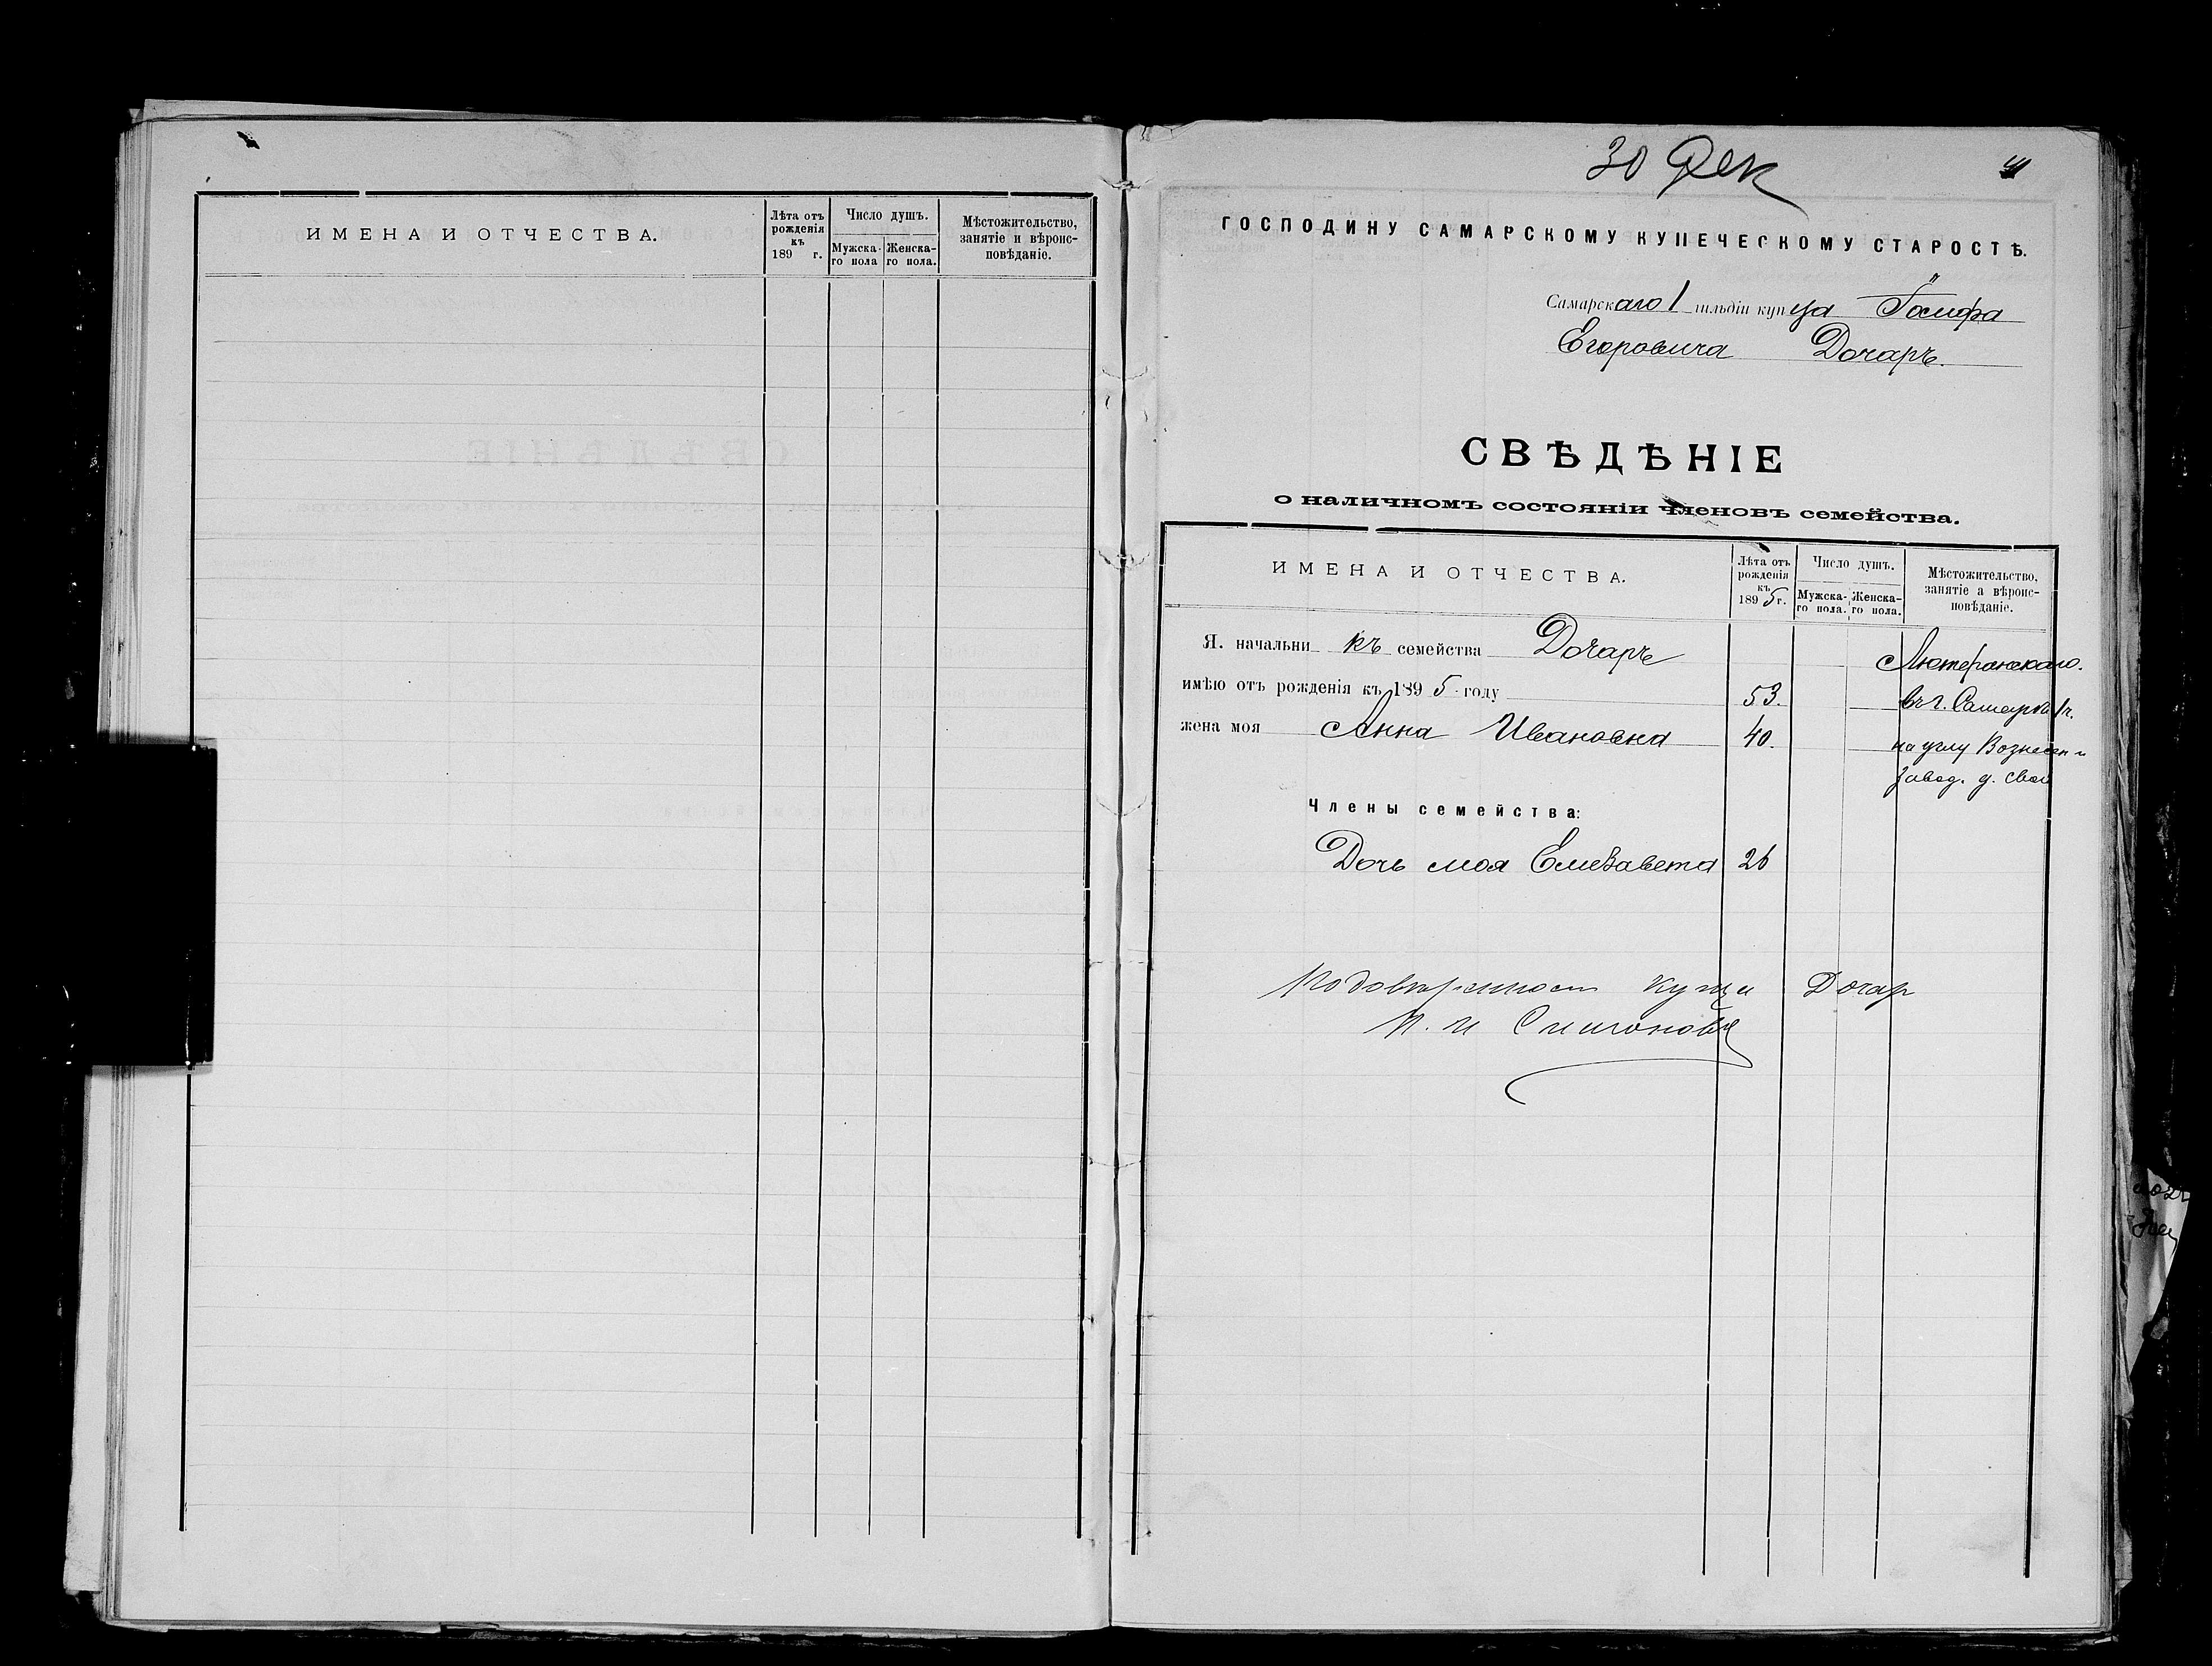 ИМЕНА И ОТЧЕСТВА.
Лѣта отъ рожденія къ 189 г.
Число душъ.
Мужска-го пола
Женска-го пола.
Мѣстожительство, занятіе и вѣроис-повѣданіе.
30 Дек
ГОСПОДИНУ САМАРСКОМУ КУПЕЧЕСКОМУ СТАРОСТѢ.
Самарскаго 1 гильдіи купца Іосифа
Егоровича Дочаръ.
СВѢДѢНІЕ
о наличномъ состояніи членовъ семейства.
ИМЕНА И ОТЧЕСТВА.
Лѣта отъ рожденія къ 1895 г.
Число душъ.
Мужска-го пола.
Женска-го пола.
Мѣстожительство, занятіе а вѣроис-повѣданіе.
Я. начальникъ семейства Дочаръ Лютеранскаго.
имѣю отъ рожденія къ 1895 году 53. въ г. Самарѣ 1 ч.
жена моя Анна Ивановна 40. на углу Вознесен и
завод. д. свой
Члены семейства:
Дочь моя Елизавета 26
По довѣренности купца Дочар